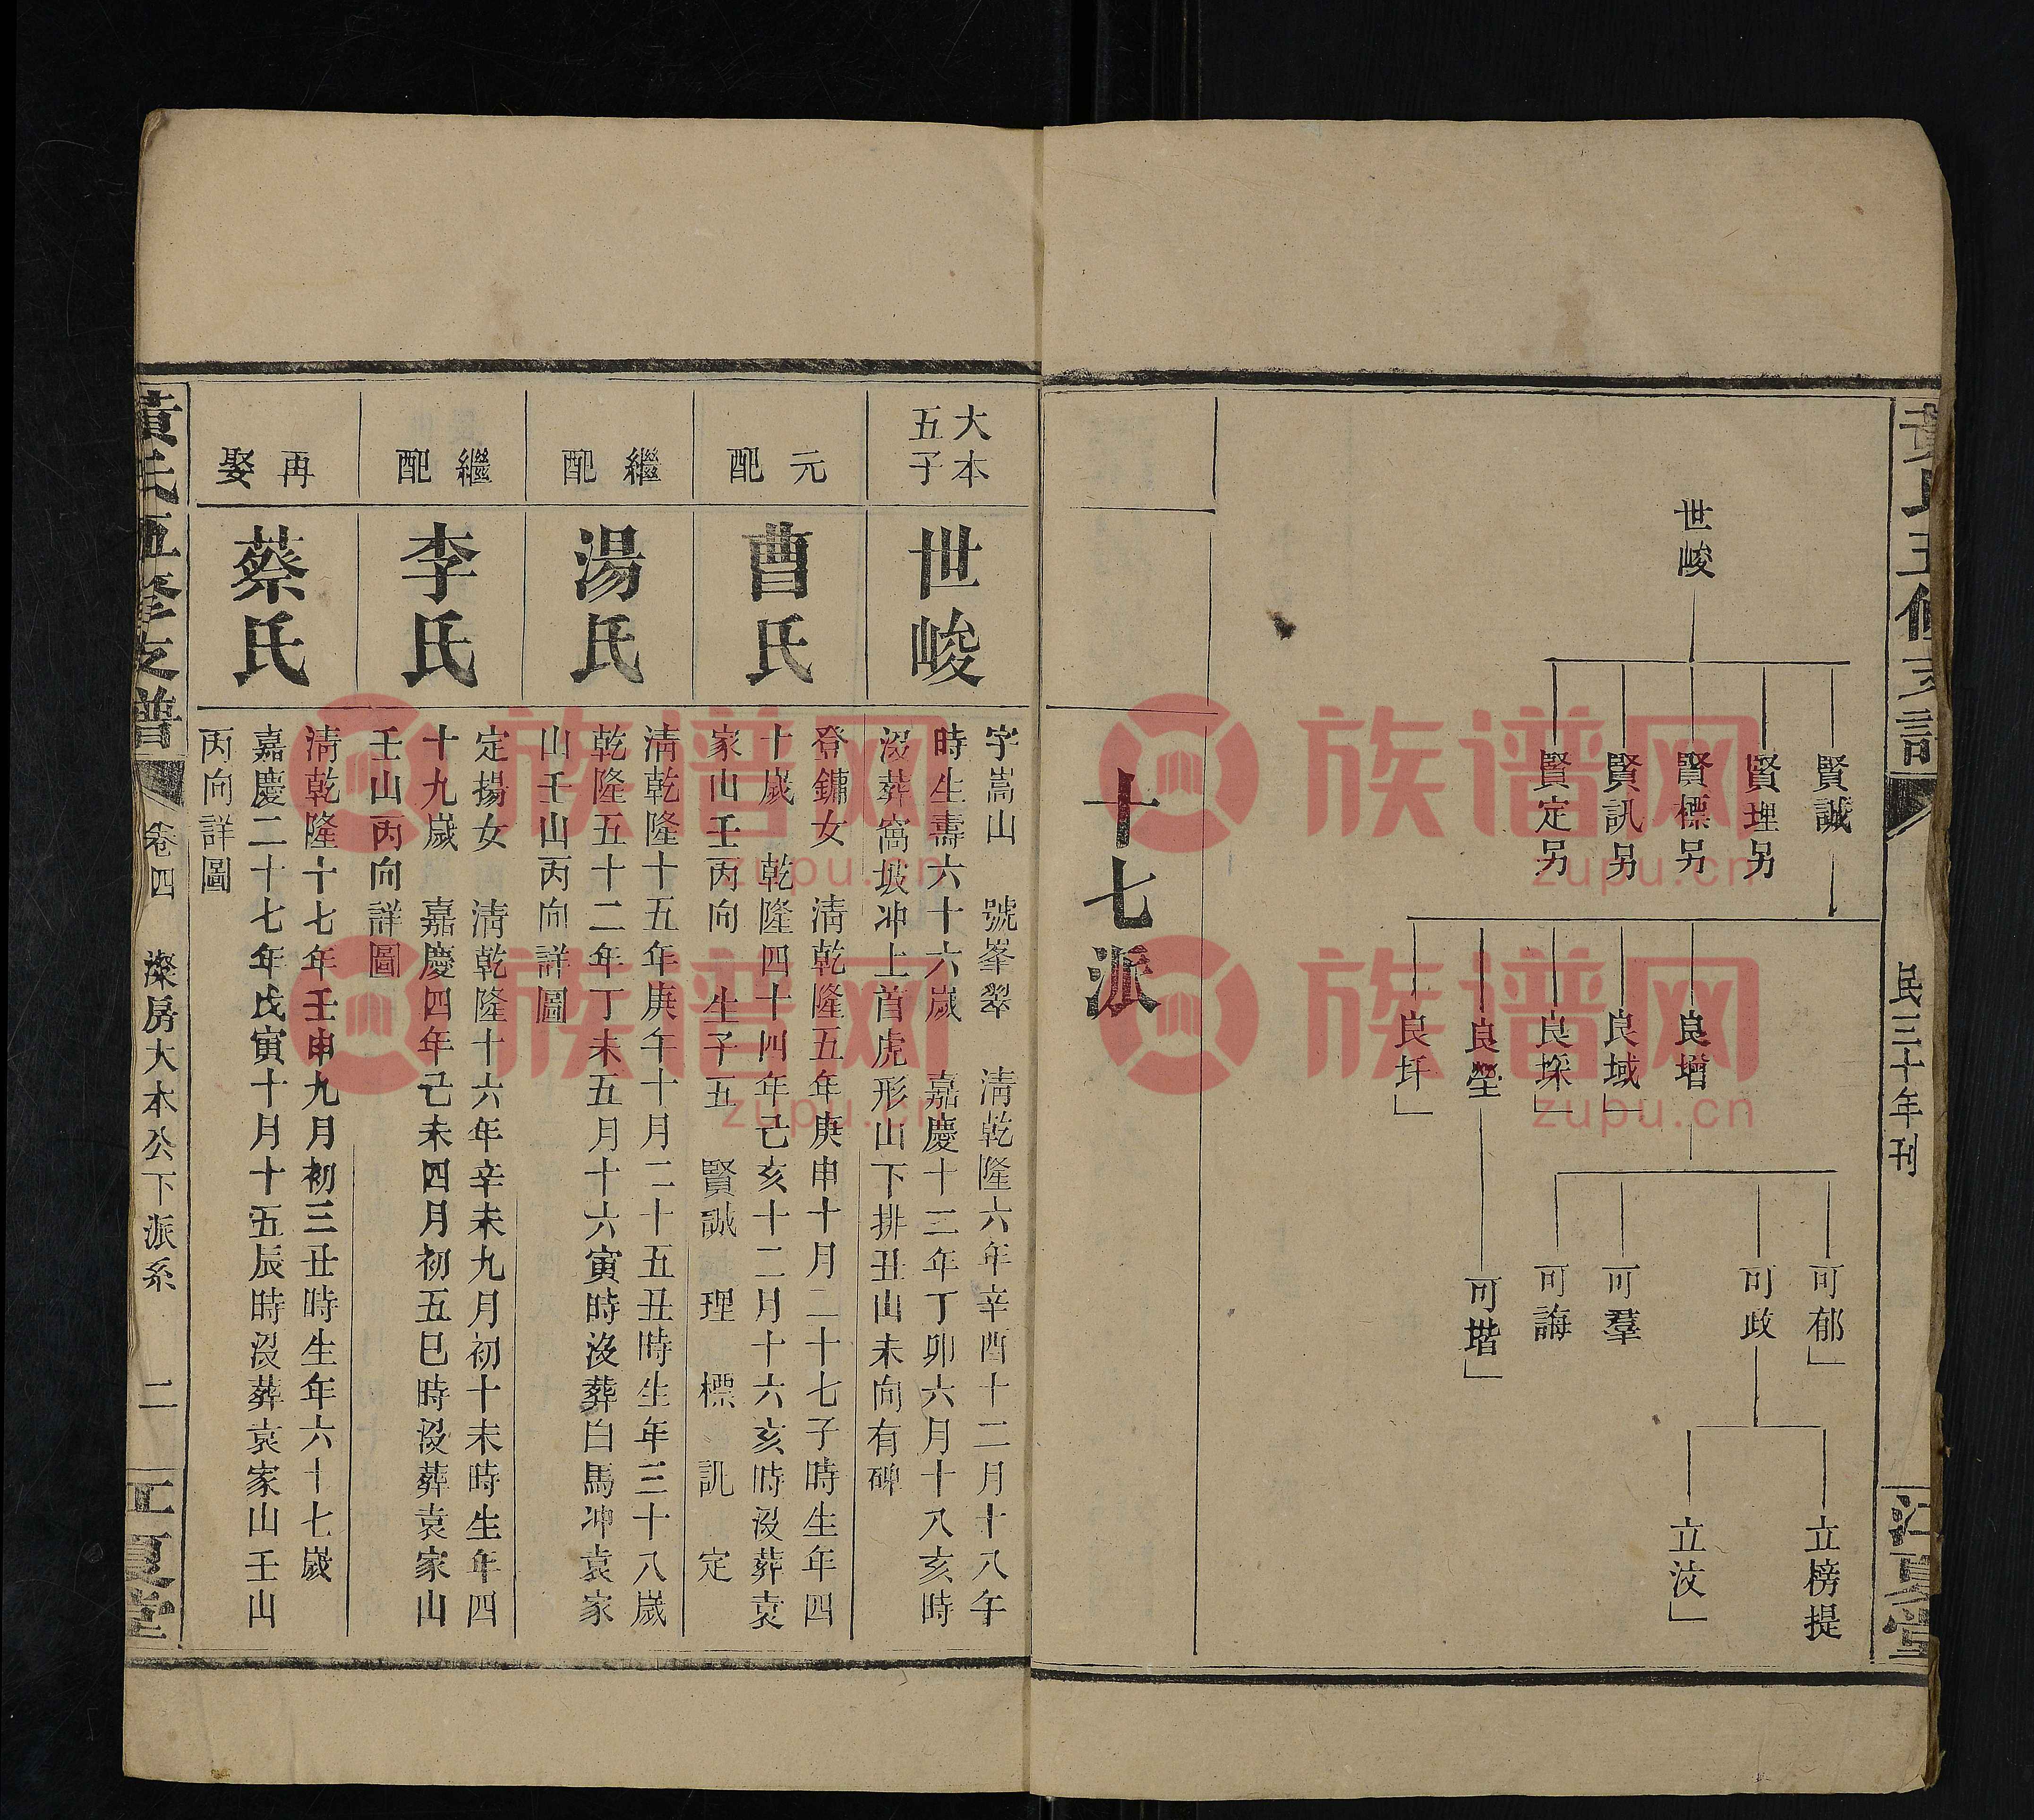 黃氏五修支譜
民三十年刊
江夏堂
世峻
賢誠
賢理另
賢標另
賢訊另
賢定另
良增
良域
良埰
良瑩
良圩
可郁
可政
可羣
可誨
可堦
立榜提
立汶
十七派
大本
五子
世峻
字嵩山 號峯翠 清乾隆六年辛酉十二月十八午
時生壽六十六歲 嘉慶十二年丁卯六月十八亥時
沒葬窩坡冲上首虎形山下排丑山未向有碑
元配
曹氏
登鏞女 清乾隆五年庚申十月二十七子時生年四
十歲 乾隆四十四年己亥十二月十六亥時沒葬袁
家山壬丙向 生子五 賢誠 理 標 訊 定
繼配
湯氏
清乾隆十五年庚午十月二十五丑時生年三十八歲
乾隆五十二年丁未五月十六寅時沒葬白馬冲袁家
山壬山丙向詳圖
繼配
李氏
定揚女 清乾隆十六年辛未九月初十未時生年四
十九歲 嘉慶四年己未四月初五巳時沒葬袁家山
壬山丙向詳圖
再娶
蔡氏
清乾隆十七年壬申九月初三丑時生年六十七歲
嘉慶二十七年戊寅十月十五辰時沒葬袁家山壬山
丙向詳圖
黃氏五修支譜
卷四
滐房大本公下派系
二
江夏堂
族谱网
zupu.cn
族谱网
zupu.cn
族谱网
zupu.cn
族谱网
zupu.cn